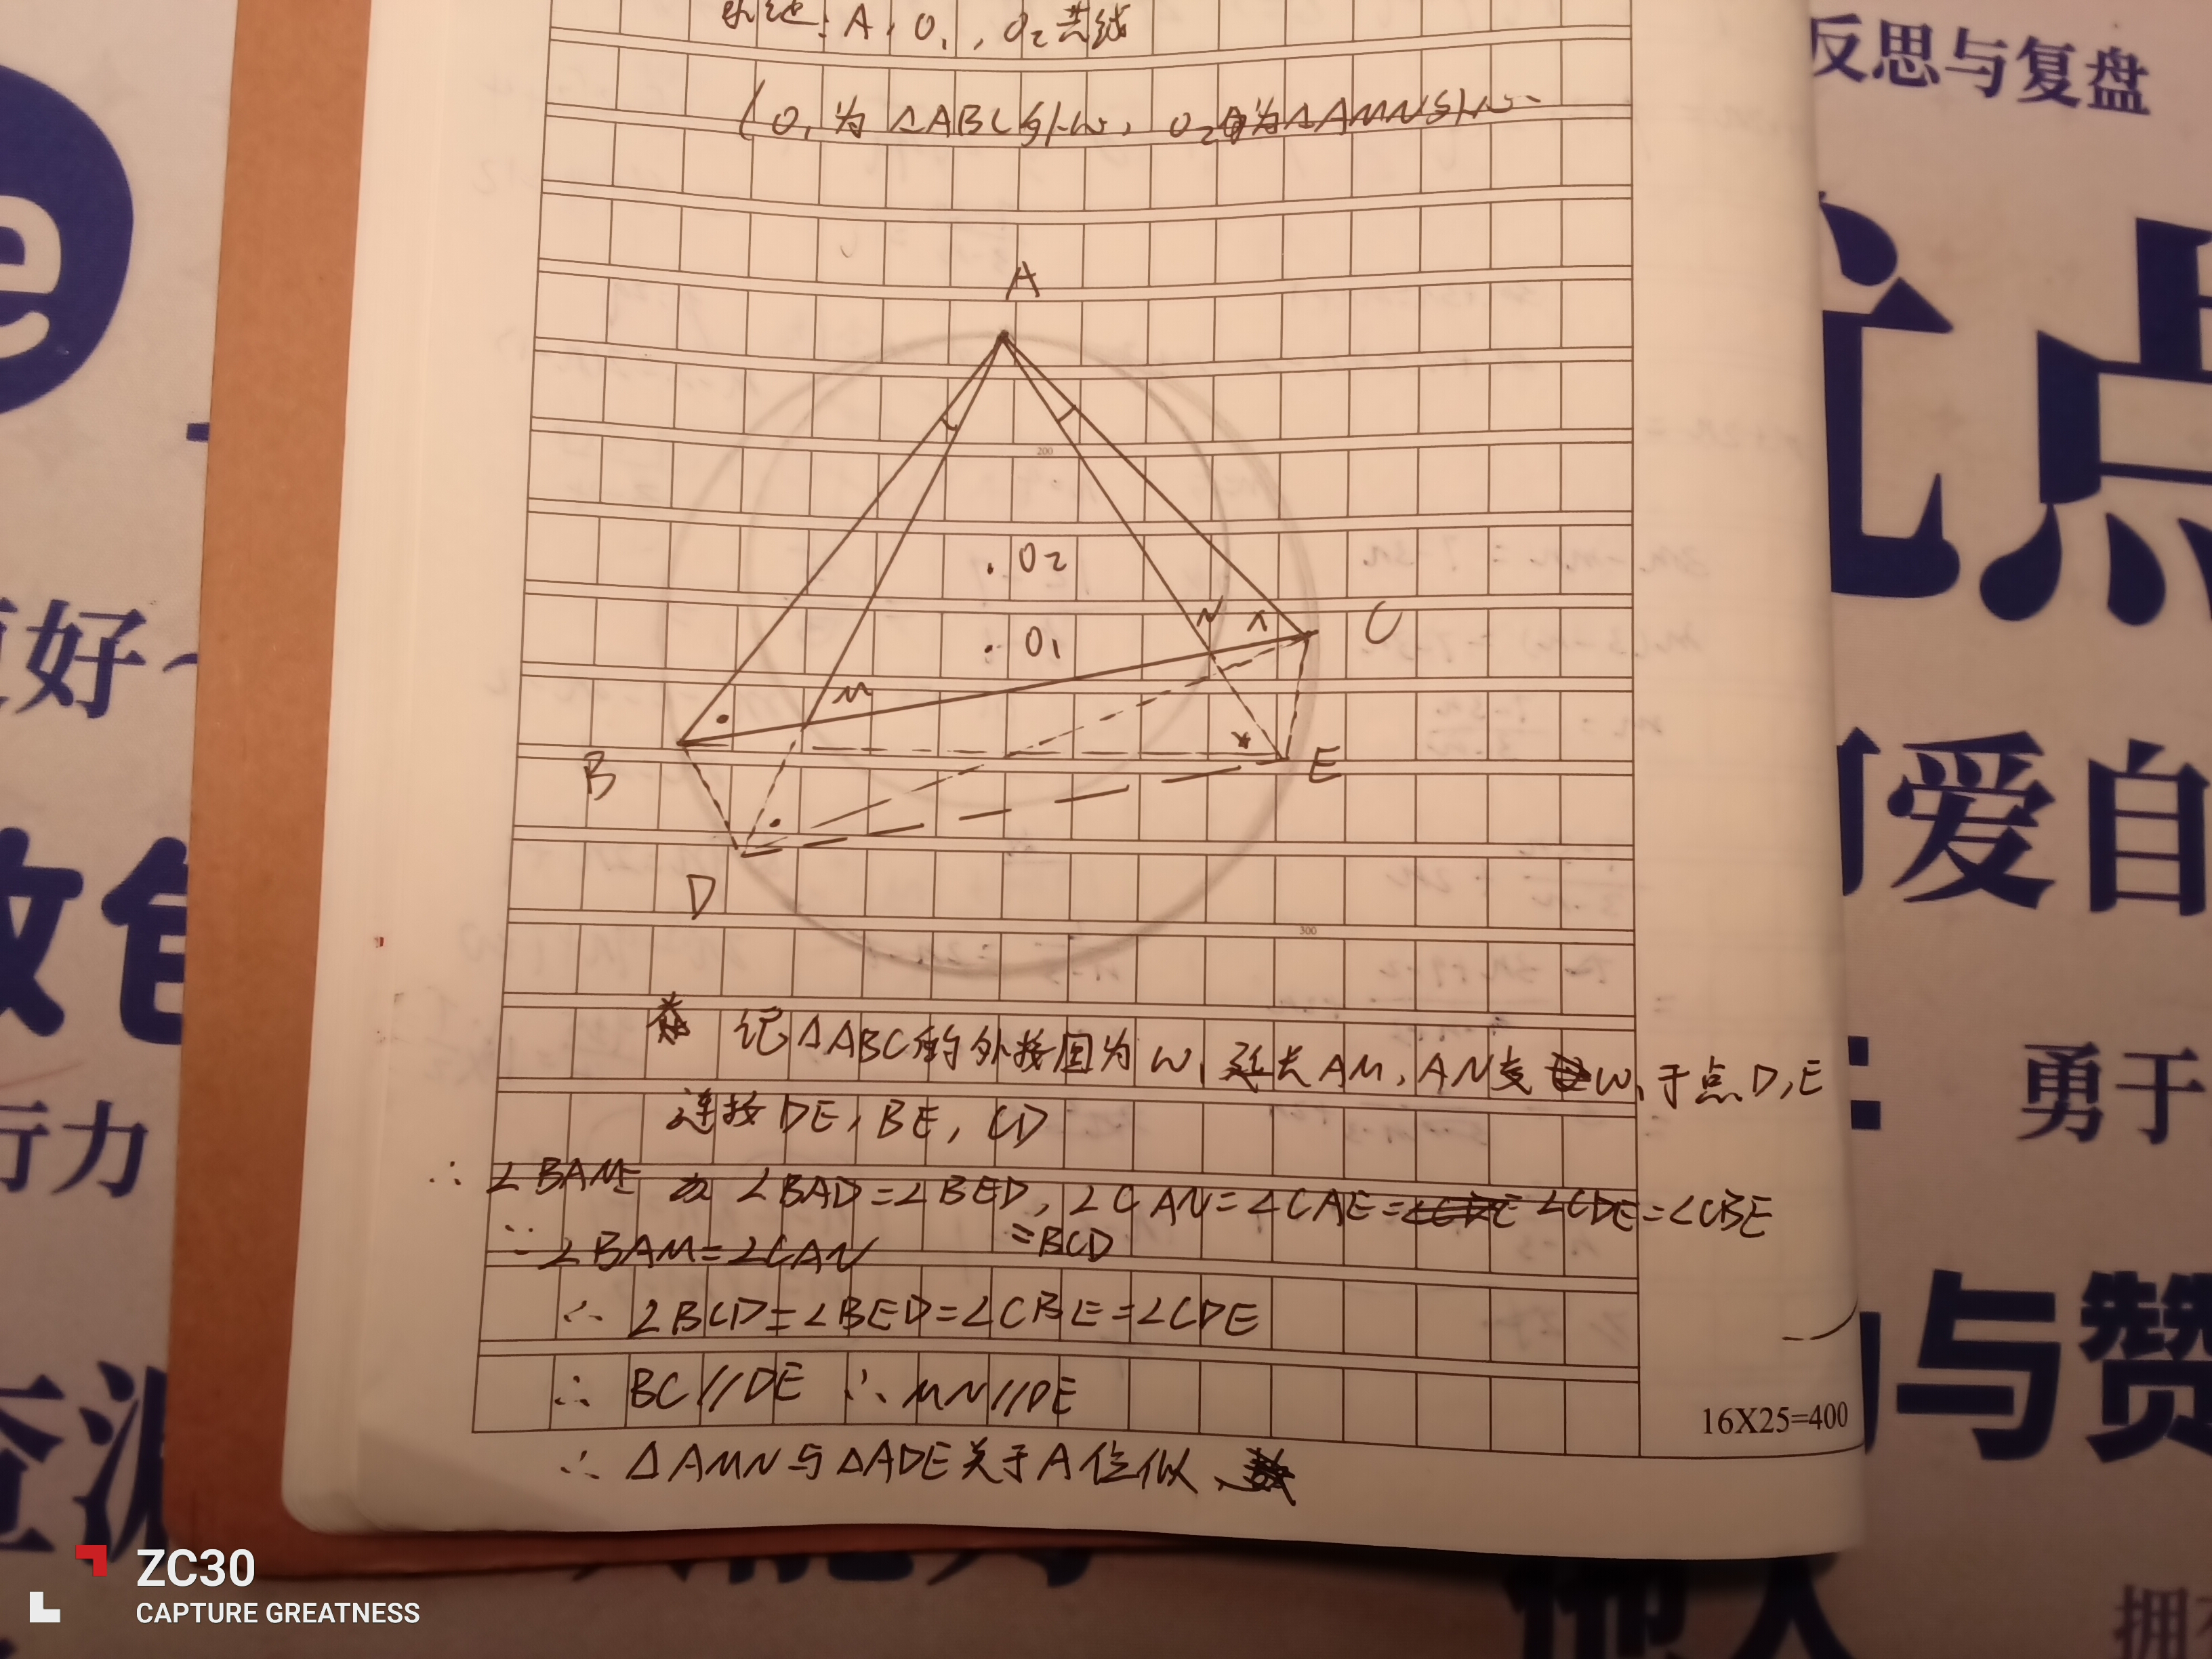 A, O₁, O₂共线
(O₁为△ABC外心, O₂为△AMN外心
A
200
O₂
O₁
N
C
M
B
E
D
300
记△ABC的外接圆为W₁ 延长AM, AN交W₁于点D, E
连接DE, BE, CD
∴ ∠BAM= ∠BAD=∠BED, ∠CAN=∠CAE=∠CDE=∠CBE
=BCD
∵ ∠BAM=∠CAN
∴ ∠BCD=∠BED=∠CBE=∠CDE
∴ BC//DE ∴ MN//DE
∴ △AMN与△ADE关于A位似、
16X25=400
反思与复盘
优点
更好~
可爱自
行力
勇于
与赞
他人
拥有
ZC30
CAPTURE GREATNESS